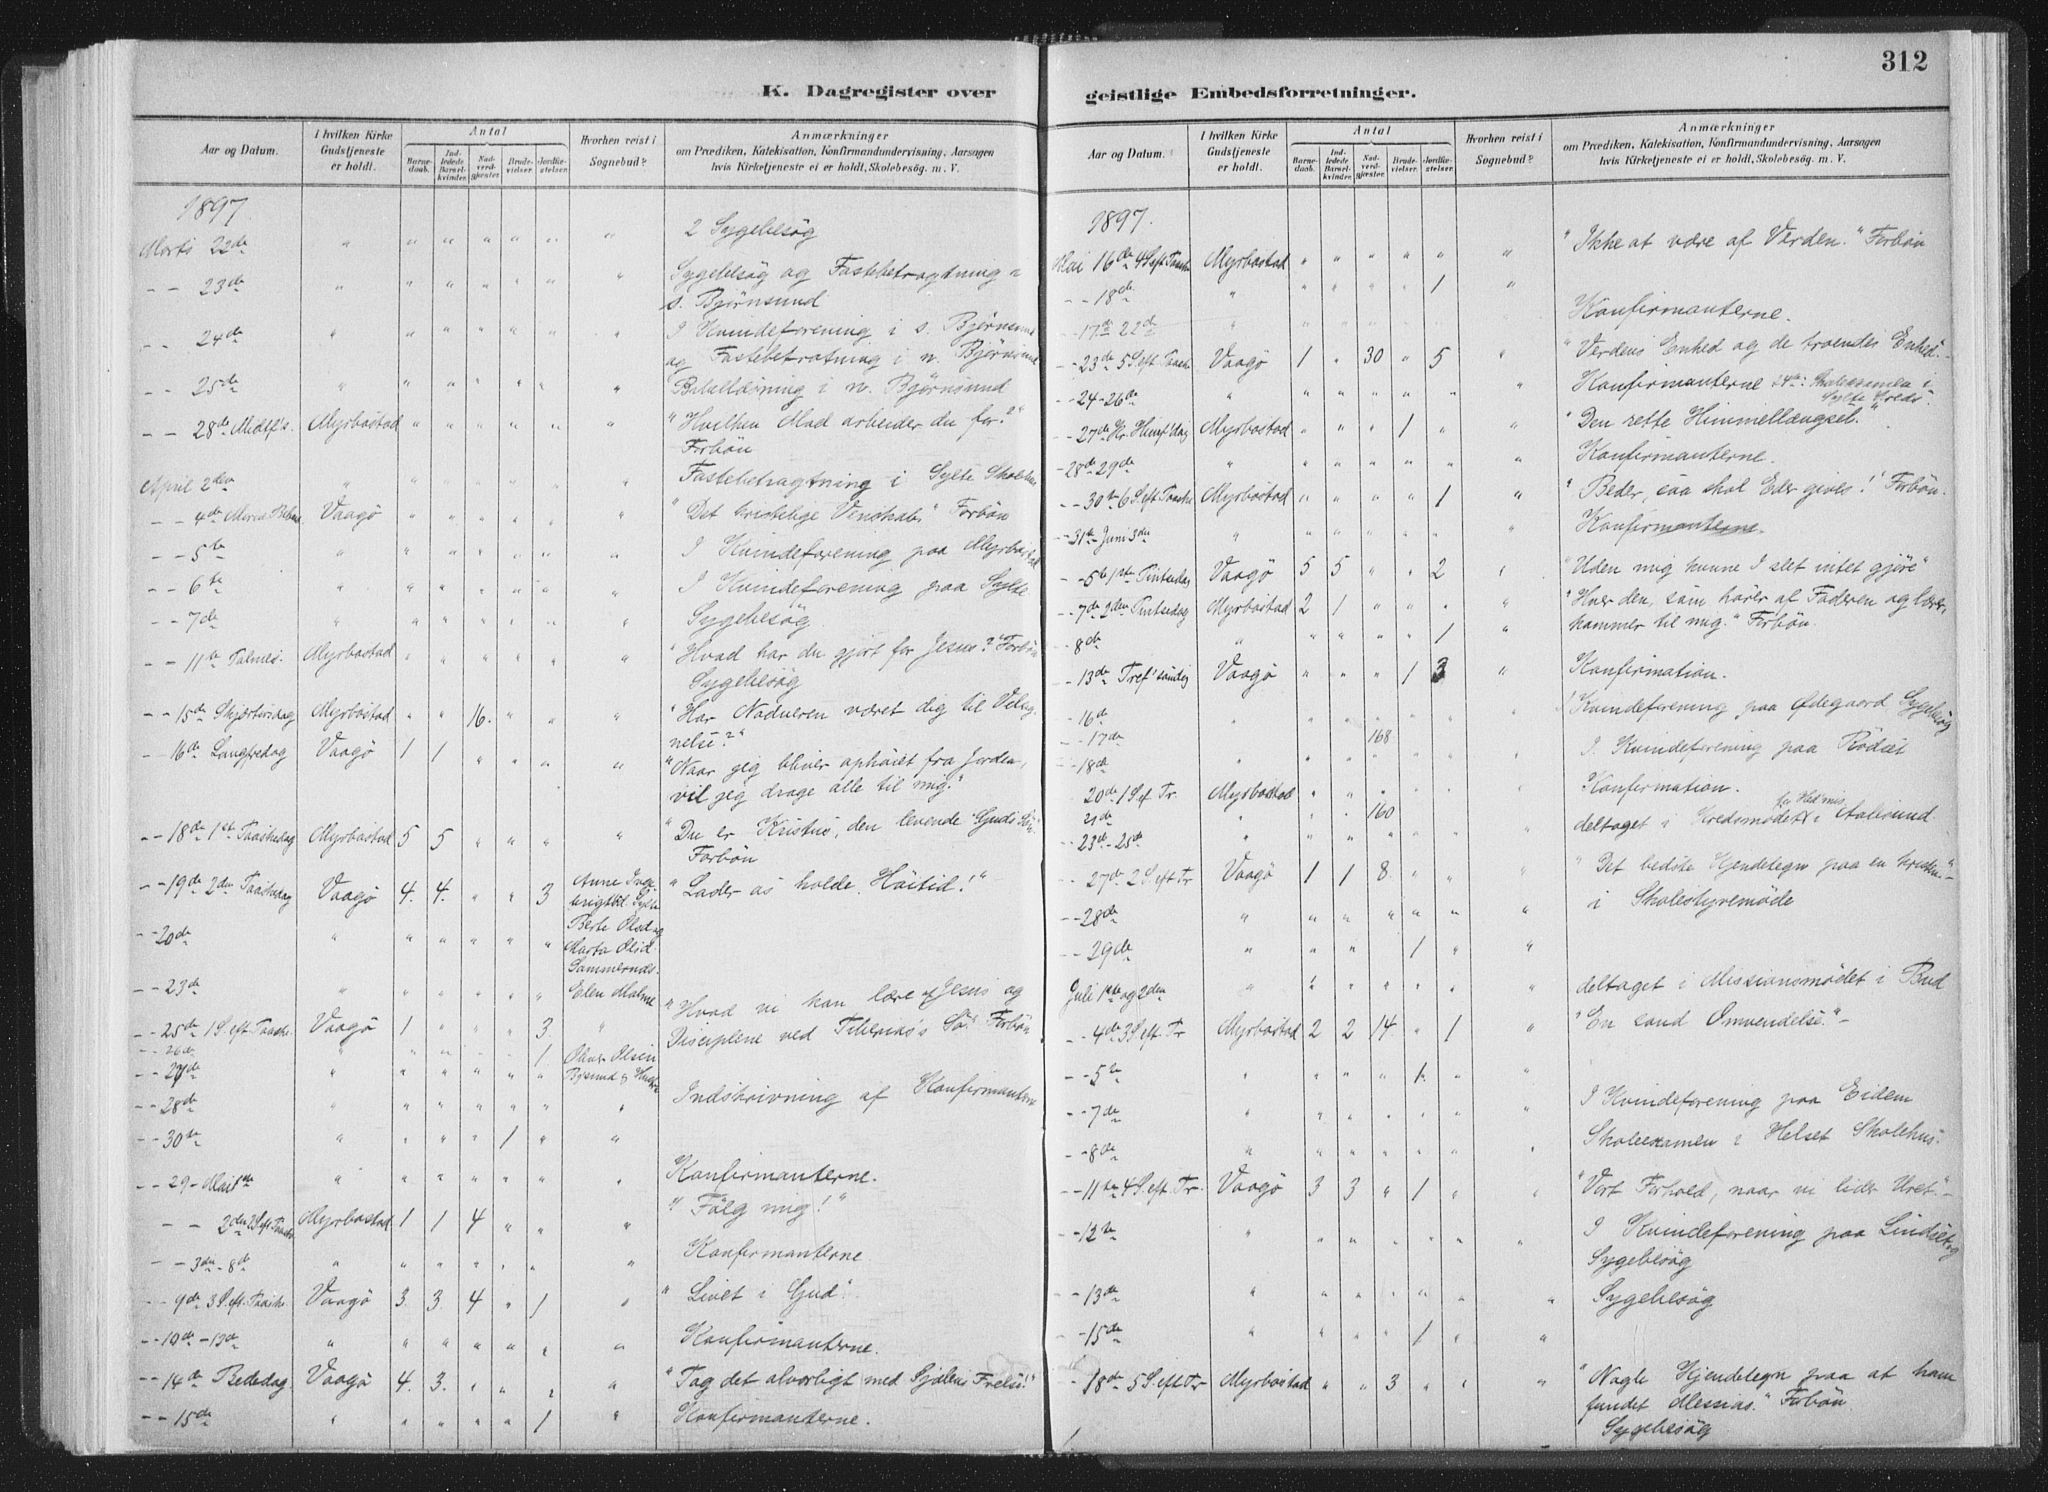 312
K. Dagregister over geistlige Embedsforretninger.
Aar og Datum.
I hvilken Kirke Gudstjeneste er holdt.
Antal
Barnedaab.
Indledede Barselkvinder.
Nadverdgjæster.
Brudevielser.
Jordfæstelser.
Hvorhen reist i Sognebud?
Anmærkninger
om Prædiken, Katekisation, Konfirmandundervisning, Aarsagen
hvis Kirketjeneste ei er holdt, Skolebesøg. m. V.
1897
Marts 22de " " " " " " " 2 Sygebesög
-- 23de " " " " " " " Sygebesög og Fastebetragtning i
s. Björnsund
-- 24de " " " " " " " I Kvindeforening i s. Björnsund
og Fastebetratning i n. Björnsund
-- 25de " " " " " " " Bibellæsning i n. Björnsund
-- 28de Midf's. Myrbostad " " " " " " "Hvilken Mad arbeider du for?"
Forbön
April 2den " " " " " " " Fastebetragtning i Sylte Skolehus
-- 4de Maria Beb. Vaagö " " " " " " "Det kristelige Venskab" Forbön
-- 5te " " " " " " " I Kvindeforening paa Myrbostad
-- 6te " " " " " " " I Kvindeforening paa Sylte
-- 7de " " " " " " " Sygebesög
-- 11te Palmes. Myrbostad " " " " " " "Hvad har du gjort for Jesus?" Forbön
Sygebesög
-- 15de Skjærtorsdag Myrbostad " " 16. " " " "Har Nadveren været dig til Velsig-
nelse?"
-- 16de Langfredag Vaagö 1 1 " " " " "Naar jeg bliver ophöiet fra Jorden,
vil jeg drage alle til mig."
-- 18de 1st Paaskedag Myrbostad 5 5 " " " " "Du er Kristus, den levende Guds Sön"
Forbön
-- 19de 2den Paaskedag Vaagö 4. 4. " " 3 Anne Inge-
brigtsd. Sylte "Lader os holde Höitid!"
-- 20de " " " " " " Berte Olsd og
Marta Olsd.
-- 23de " " " " " " Elen Malme
-- 25de 1 S. eft. Paaske Vaagö 1 " " " 3. " "Hvad vi kan lære af Jesus og
Disciplene ved Tiberias's Sö" Forbön
-- 26de " " " " " 1 Olsen
-- 27de " " " " " "
-- 28de " " " " " " " Indskrivning af Konfirmanterne
-- 30te " " " " 1 " "
-- 29-Mai 1ste " " " " " " " Konfirmanterne.
-- 2den 2 S eft Paaske Myrbostad 1 1 4 " " " "Fölg mig!"
-- 3die-8de " " " " " " Konfirmanterne
-- 9de 3 S. eft. Paaske Vaagö 3. 3. 4 " 1 " "Livet i Gud."
-- 10de-13de " " " " " " " Konfirmanterne.
-- 14de Bededag. Vaagö 4. 3. " " " " "Tag det alvorligt med Sjælens Frelse!"
-- 15de " " " " " 1 " Konfirmanterne.
Aar og Datum.
I hvilken Kirke Gudstjeneste er holdt.
Antal
Barnedaab.
Indledede Barselkvinder.
Nadverdgjæster.
Brudevielser.
Jordfæstelser.
Hvorhen reist i Sognebud?
Anmærkninger
om Prædiken, Katekisation, Konfirmandundervisning, Aarsagen
hvis Kirketjeneste ei er holdt, Skolebesøg. m. V.
1897.
Mai 16de 4 S eft. Paaske Myrbostad " " " " " " "Ikke at være af Verden." Forbön
-- 18de " " " " " 1 "
-- 17de 22de " Konfirmanterne.
-- 23de 5 S eft Paaske Vaagö 1 " 30 " 5 " "Verdens Enhed og de troendes Enhed."
-- 24-26de " " " " " " " Konfirmanterne 24de: Skoleexamen i
Sylte Kreds
-- 27de Kr. Himf'dag Myrbostad " " " 1 " " "Den rette Himmellængsel."
28de 29de " " " " " " " Konfirmanterne.
-- 30te 6 S eft Paaske Myrbostad " " " " 1 " "Beder, saa skal Eder gives!" Forbön.
-- 31te-Juni 3die " " " " " " " Konfirmanterne.
-- 1ste Pintsedag Vaagö 5 5 " " 2 " "Uden mig kunne I slet intet gjöre"
-- 7de 2den Pintsedag Myrbostad 2 1 " " " " "Hver den, som hörer af Faderen og lærer,
kommer til mig." Forbön.
-- 8de " " " " " 1 "
-- 13de Tref'söndag Vaagö " " " 1 3 " Konfirmation.
-- 16de " " " " " " " I Kvindeforening paa Ødegaard Sygebesög
-- 17de 168
-- 18de " " " " " " " I Kvindeforening paa Rödset
20de 1 S ef. Tr. Myrbostad " " " " " Konfirmation.
21de " " " 160 " "
-- 23de-25de " " " " " " " deltaget i Kredsmödet for Hedmis. i Aalesund.
-- 27de 2 S. eft Tr Vaagö 1 1 8. " " " "Det bedste Kjendetegn paa en kristen."
-- 28de " " " " " " " i Skolestyremöde
-- 29de " " " " 1 " "
Juli 1ste og 2den " " " " " " " deltaget i Missionsmödet i Bud
-- 4de 3 S eft. Tr Myrbostad 2 2 14. " 1 " "En sand Omvendelse."
-- 5te " " " " 1. " "
-- 7de " " " " " " " I Kvindeforening paa Eidem
-- 8de " " " " " " " Skoleexamen i Helset Skolehus.
-- 11te 4 S. eft. Tr. Vaagö 3 3 " 1 " " "Vort Forhold, naar vi lider Uret."
-- 12te " " " " " " " I Kvindeforening paa Lindset og
Sygebesög
-- 13de " " " " " " " Sygebesög
-- 15de " " " " 1 " "
-- 18de 5 S. eft Tr Myrbostad " " 3 " " " "Nogle Kjendetegn paa at have
fundet Messias." Forbön
Sygebesög